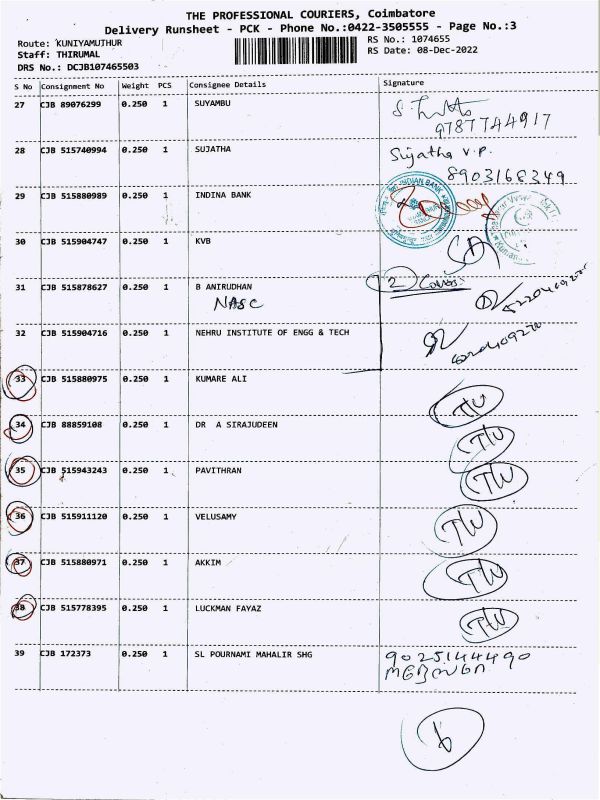 THE PROFESSIONAL COURIERS, Coimbatore
Delivery Runsheet - PCK - Phone No.:0422-3505555 - Page No.:3
Route: KUNIYAMUTHUR RS No.: 1074655
Staff: THIRUMAL RS Date: 08-Dec-2022
DRS No.: DCJB107465503
S No Consignment No Weight PCS Consignee Details Signature
27 CJB 89076299 0.250 1 SUYAMBU
9787744917
28 CJB 515740994 0.250 1 SUJATHA Sujatha V.P.
8903168349
29 CJB 515880989 0.250 1 INDINA BANK INDIAN BANK
30 CJB 515904747 0.250 1 KVB
31 CJB 515878627 0.250 1 B ANIRUDHAN 2
NASC
32 CJB 515904716 0.250 1 NEHRU INSTITUTE OF ENGG & TECH
33 CJB 515880975 0.250 1 KUMARE ALI T/U
34 CJB 88859108 0.250 1 DR A SIRAJUDEEN T/U
35 CJB 515943243 0.250 1 PAVITHRAN T/U
36 CJB 515911120 0.250 1 VELUSAMY T/U
37 CJB 515880971 0.250 1 AKKIM T/U
38 CJB 515778395 0.250 1 LUCKMAN FAYAZ T/U
39 CJB 172373 0.250 1 SL POURNAMI MAHALIR SHG 9025144490
6